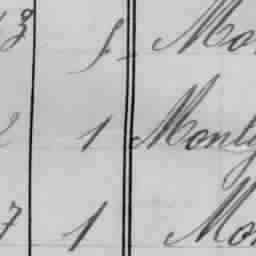 3 5 Mo
2 1 Montg
7 1 Mo